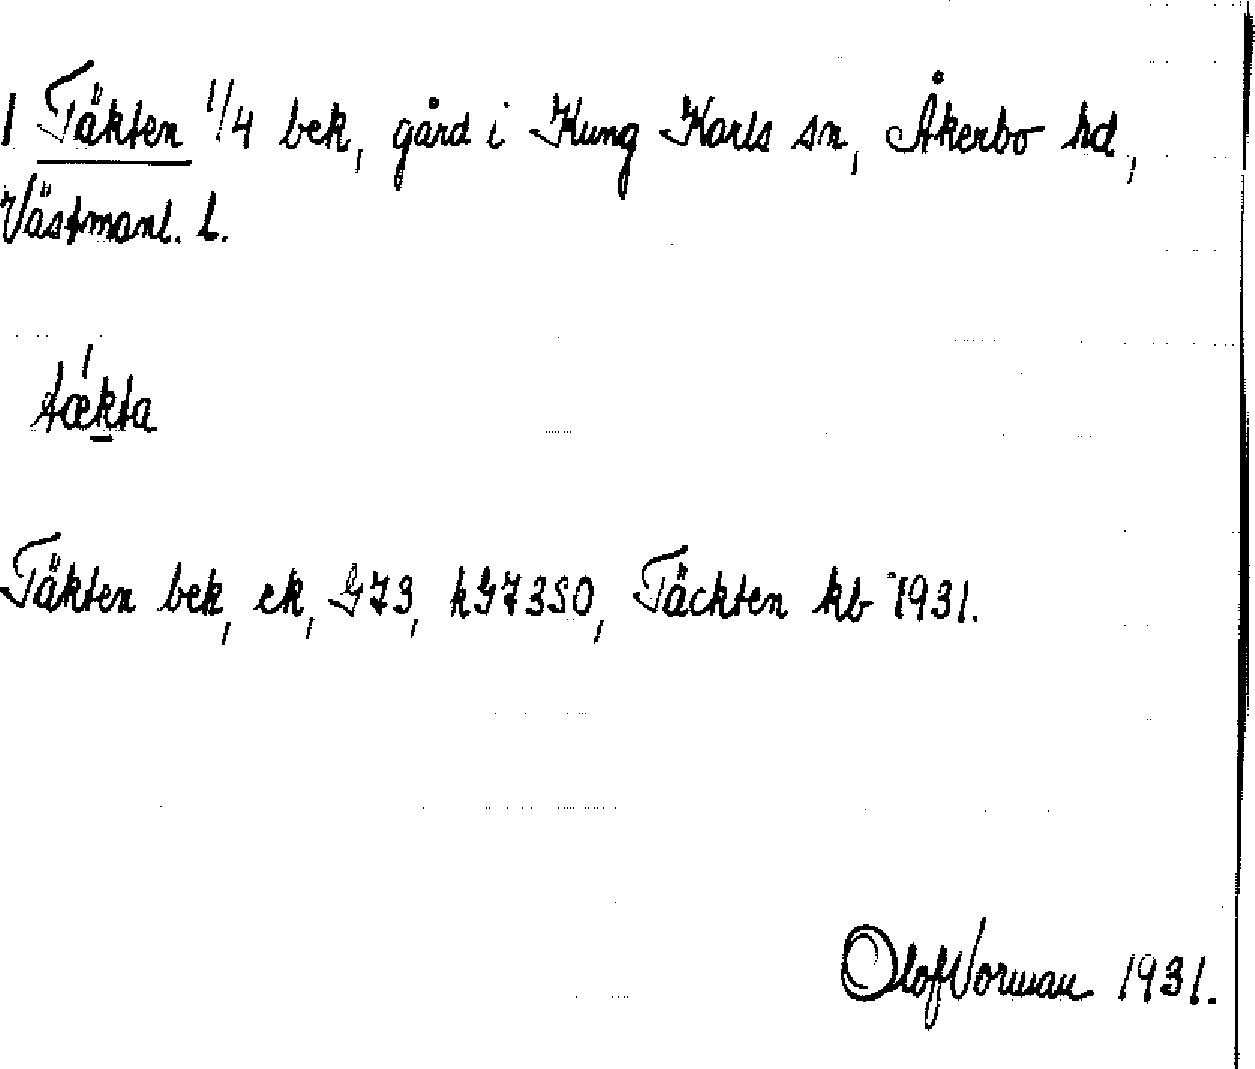 1 Täkten 1/4 bek, gård i Kung Karls sn, Åkerbo hd,
Västmanl. l.
tækta
Täkten bek, ek, G73, hG73SO, Täckten kb 1931.
Olof Norman 1931.